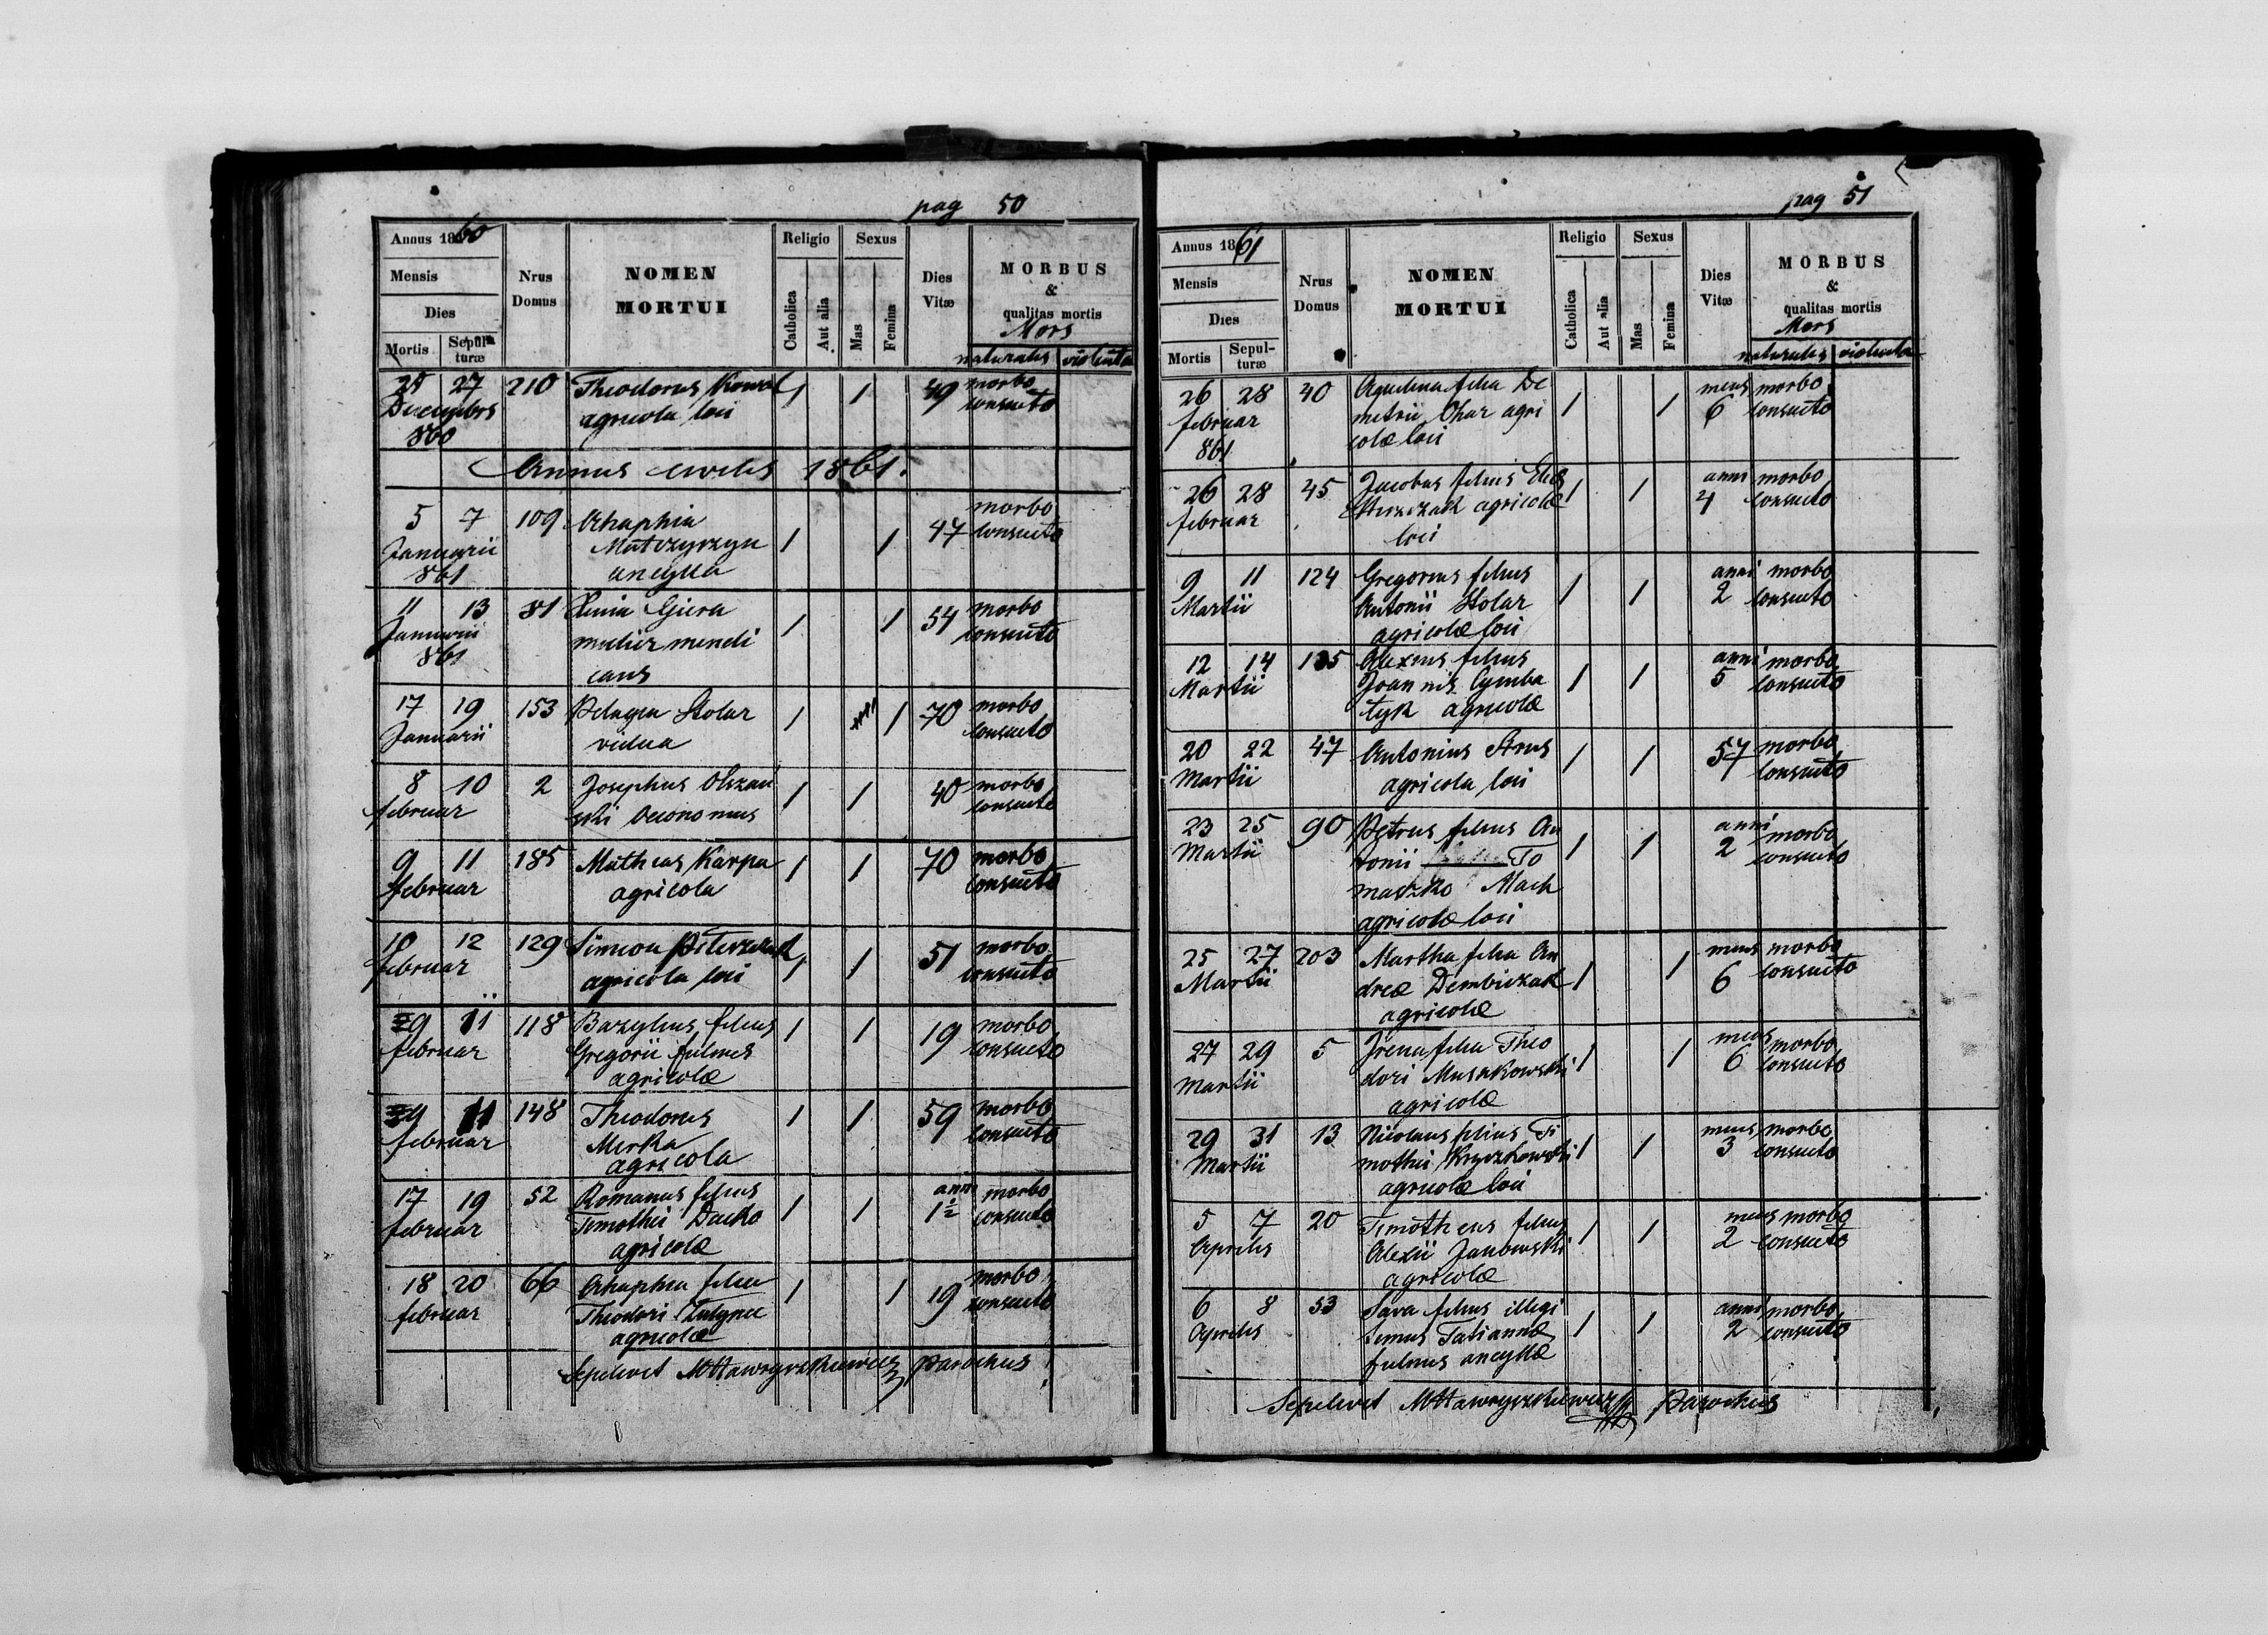 pag 50
Annus 1860
Mensis
Dies
Mortis
Sepulturæ
Nrus Domus
NOMEN MORTUI
Religio
Catholica
Aut alia
Sexus
Mas
Femina
Dies Vitæ
MORBUS & qualitas mortis
Mors
naturalis violenta
25 27 210 Theodorus Kowal 1 1 49 morbo
Decembris agricola loci consueto
860
Annus civilis 1861.
5 7 109 Ahaphia 1 1 47 morbo
Januarii Matczyszyn consueto
861 ancylla
11 13 81 Xenia Giera 1 1 54 morbo
Januarii mulier mendi consueto
861 cans
17 19 153 Pelagia Stolar 1 1 70 morbo
Januarii vidua consueto
8 10 2 Josephus Olszań 1 1 40 morbo
februar ski Oeconomus consueto
9 11 185 Matheas Karpa 1 1 70 morbo
februar agricola consueto
10 12 129 Simeon Peterczak 1 1 51 morbo
februar agricola loci consueto
9 11 118 Bazylius filius 1 1 19 morbo
februar Gregorii fulmes consueto
agricolæ
9 11 148 Theodorus 1 1 59 morbo
februar Merka consueto
agricola
17 19 52 Romanus filius 1 1 anni 1½ morbo
februar Timothei Dacko consueto
agricolæ
18 20 66 Ahaphia filia 1 1 19 morbo
februar Theodori consueto
agricolæ
Sepelivit MHawryszkiewicz parochus
pag 51
Annus 1861
Mensis
Dies
Mortis
Sepulturæ
Nrus Domus
NOMEN MORTUI
Religio
Catholica
Aut alia
Sexus
Mas
Femina
Dies Vitæ
MORBUS & qualitas mortis
Mors
naturalis violenta
26 28 40 Aquilina filia De 1 1 mens 6 morbo
februar metrii Ohar agri consueto
861 colæ loci
26 28 45 Jacobus filius Eliæ 1 1 anni 4 morbo
februar agricolæ consueto
loci
9 11 124 Gregorius filius 1 1 anni 2 morbo
Martii Antonii Stolar consueto
agricolæ loci
12 14 135 Alexius filius 1 1 anni 5 morbo
Martii Joannis Cymba consueto
tyk agricolæ
20 22 47 Antonius Strus 1 1 57 morbo
Martii agricola loci consueto
23 25 90 Petrus filius An 1 1 anni 2 morbo
Martii tonii To consueto
maszko Mach
agricolæ loci
25 27 203 Martha filia An 1 1 mens 6 morbo
Martii dreæ Dembiczak consueto
agricolæ
27 29 5 Irena filia Theo 1 1 mens 6 morbo
Martii dori Musakowski consueto
agricolæ
29 31 13 Nicolaus filius Ti 1 1 mens 3 morbo
Martii mothei Kryczkowski consueto
agricolæ loci
5 7 20 Timotheus filius 1 1 mens 2 morbo
Aprilis Alexii Janowski consueto
agricolæ
6 8 53 Sava filius illegi 1 1 anni 2 morbo
Aprilis timus Tatiannæ consueto
fulmes ancyllæ
Sepelivit MHawryszkiewicz parochus